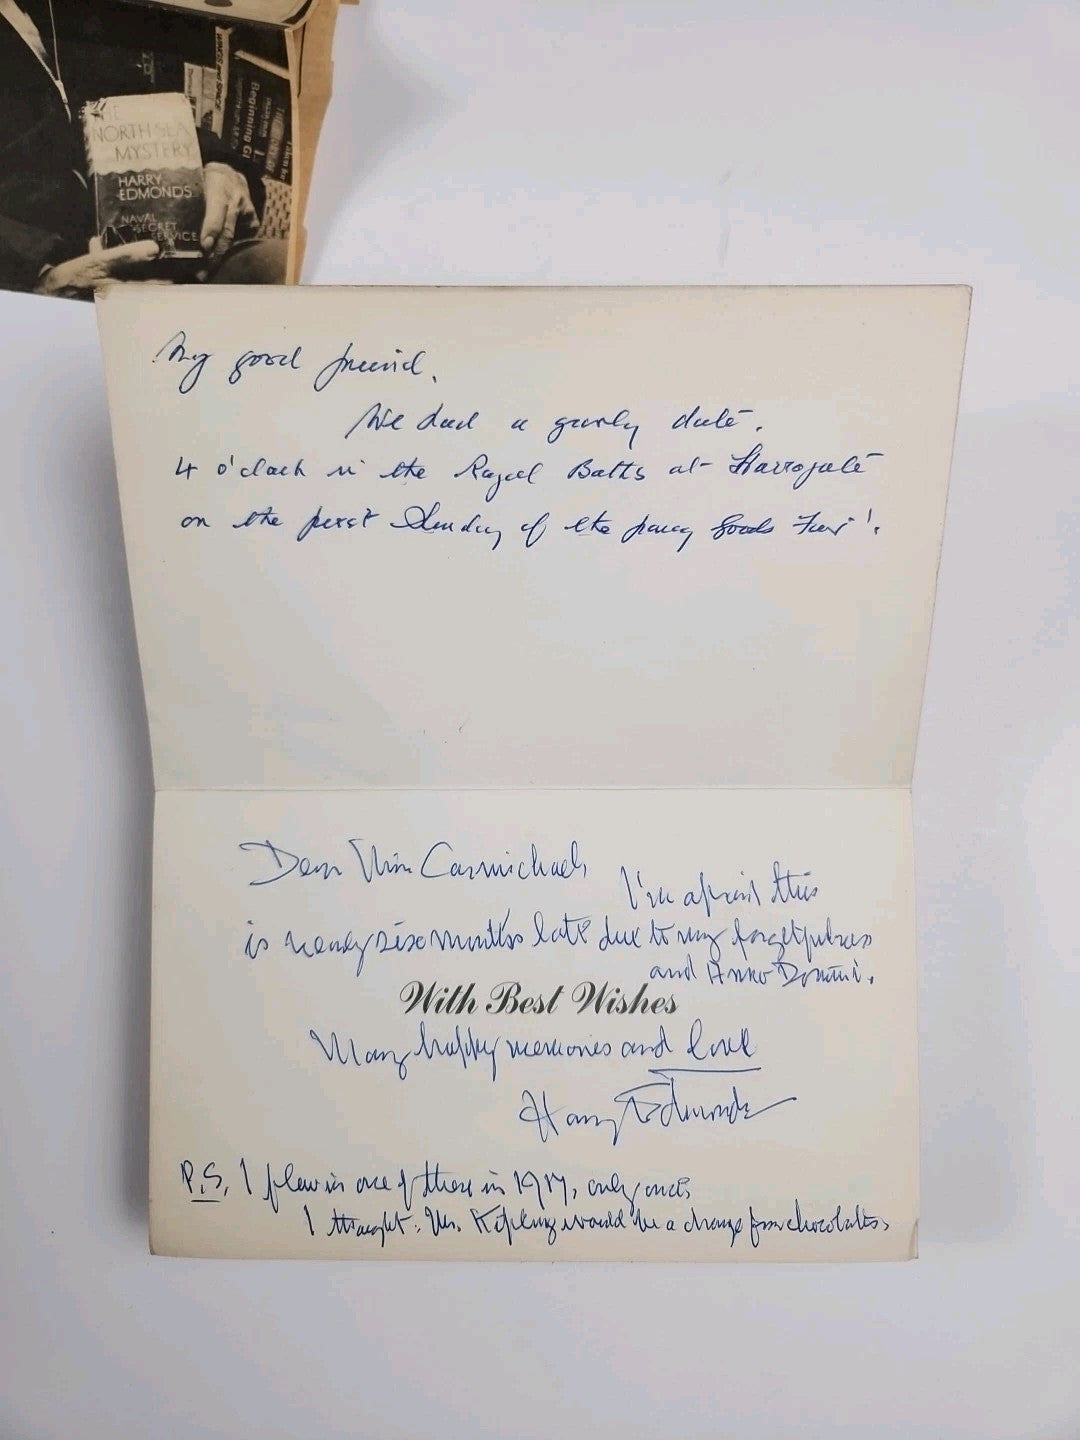 THE
NORTH SEA
MYSTERY
HARRY
EDMONDS
NAVAL
SECRET
SERVICE
Beginning
My good friend,
We had a yearly date.
4 o'clock in the Royal Baths at Harrogate
on the first Sunday of the fancy Goods Fair!.
Dear Carmichael,
I'm afraid this
is nearly six months late due to my forgetfulness
and Anno Domini.
With Best Wishes
Many happy memories and love
Harry Edmonds
P.S. I flew in one of these in 1917, only once,
I thought Mr. Kipling would be a change from chocolates,